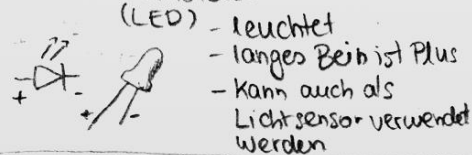 (LED) - leuchtet
- langes Bein ist Plus
- Kann auch als
Lichtsensor verwendet
werden
+ -
+ -